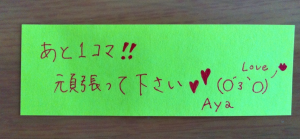 あと1コマ!!
頑張って下さい♥♥
Love
(О´3`О)
Aya